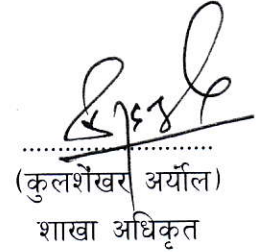 (कुलशेंखर अर्याेल)
शाखा अधिकृत